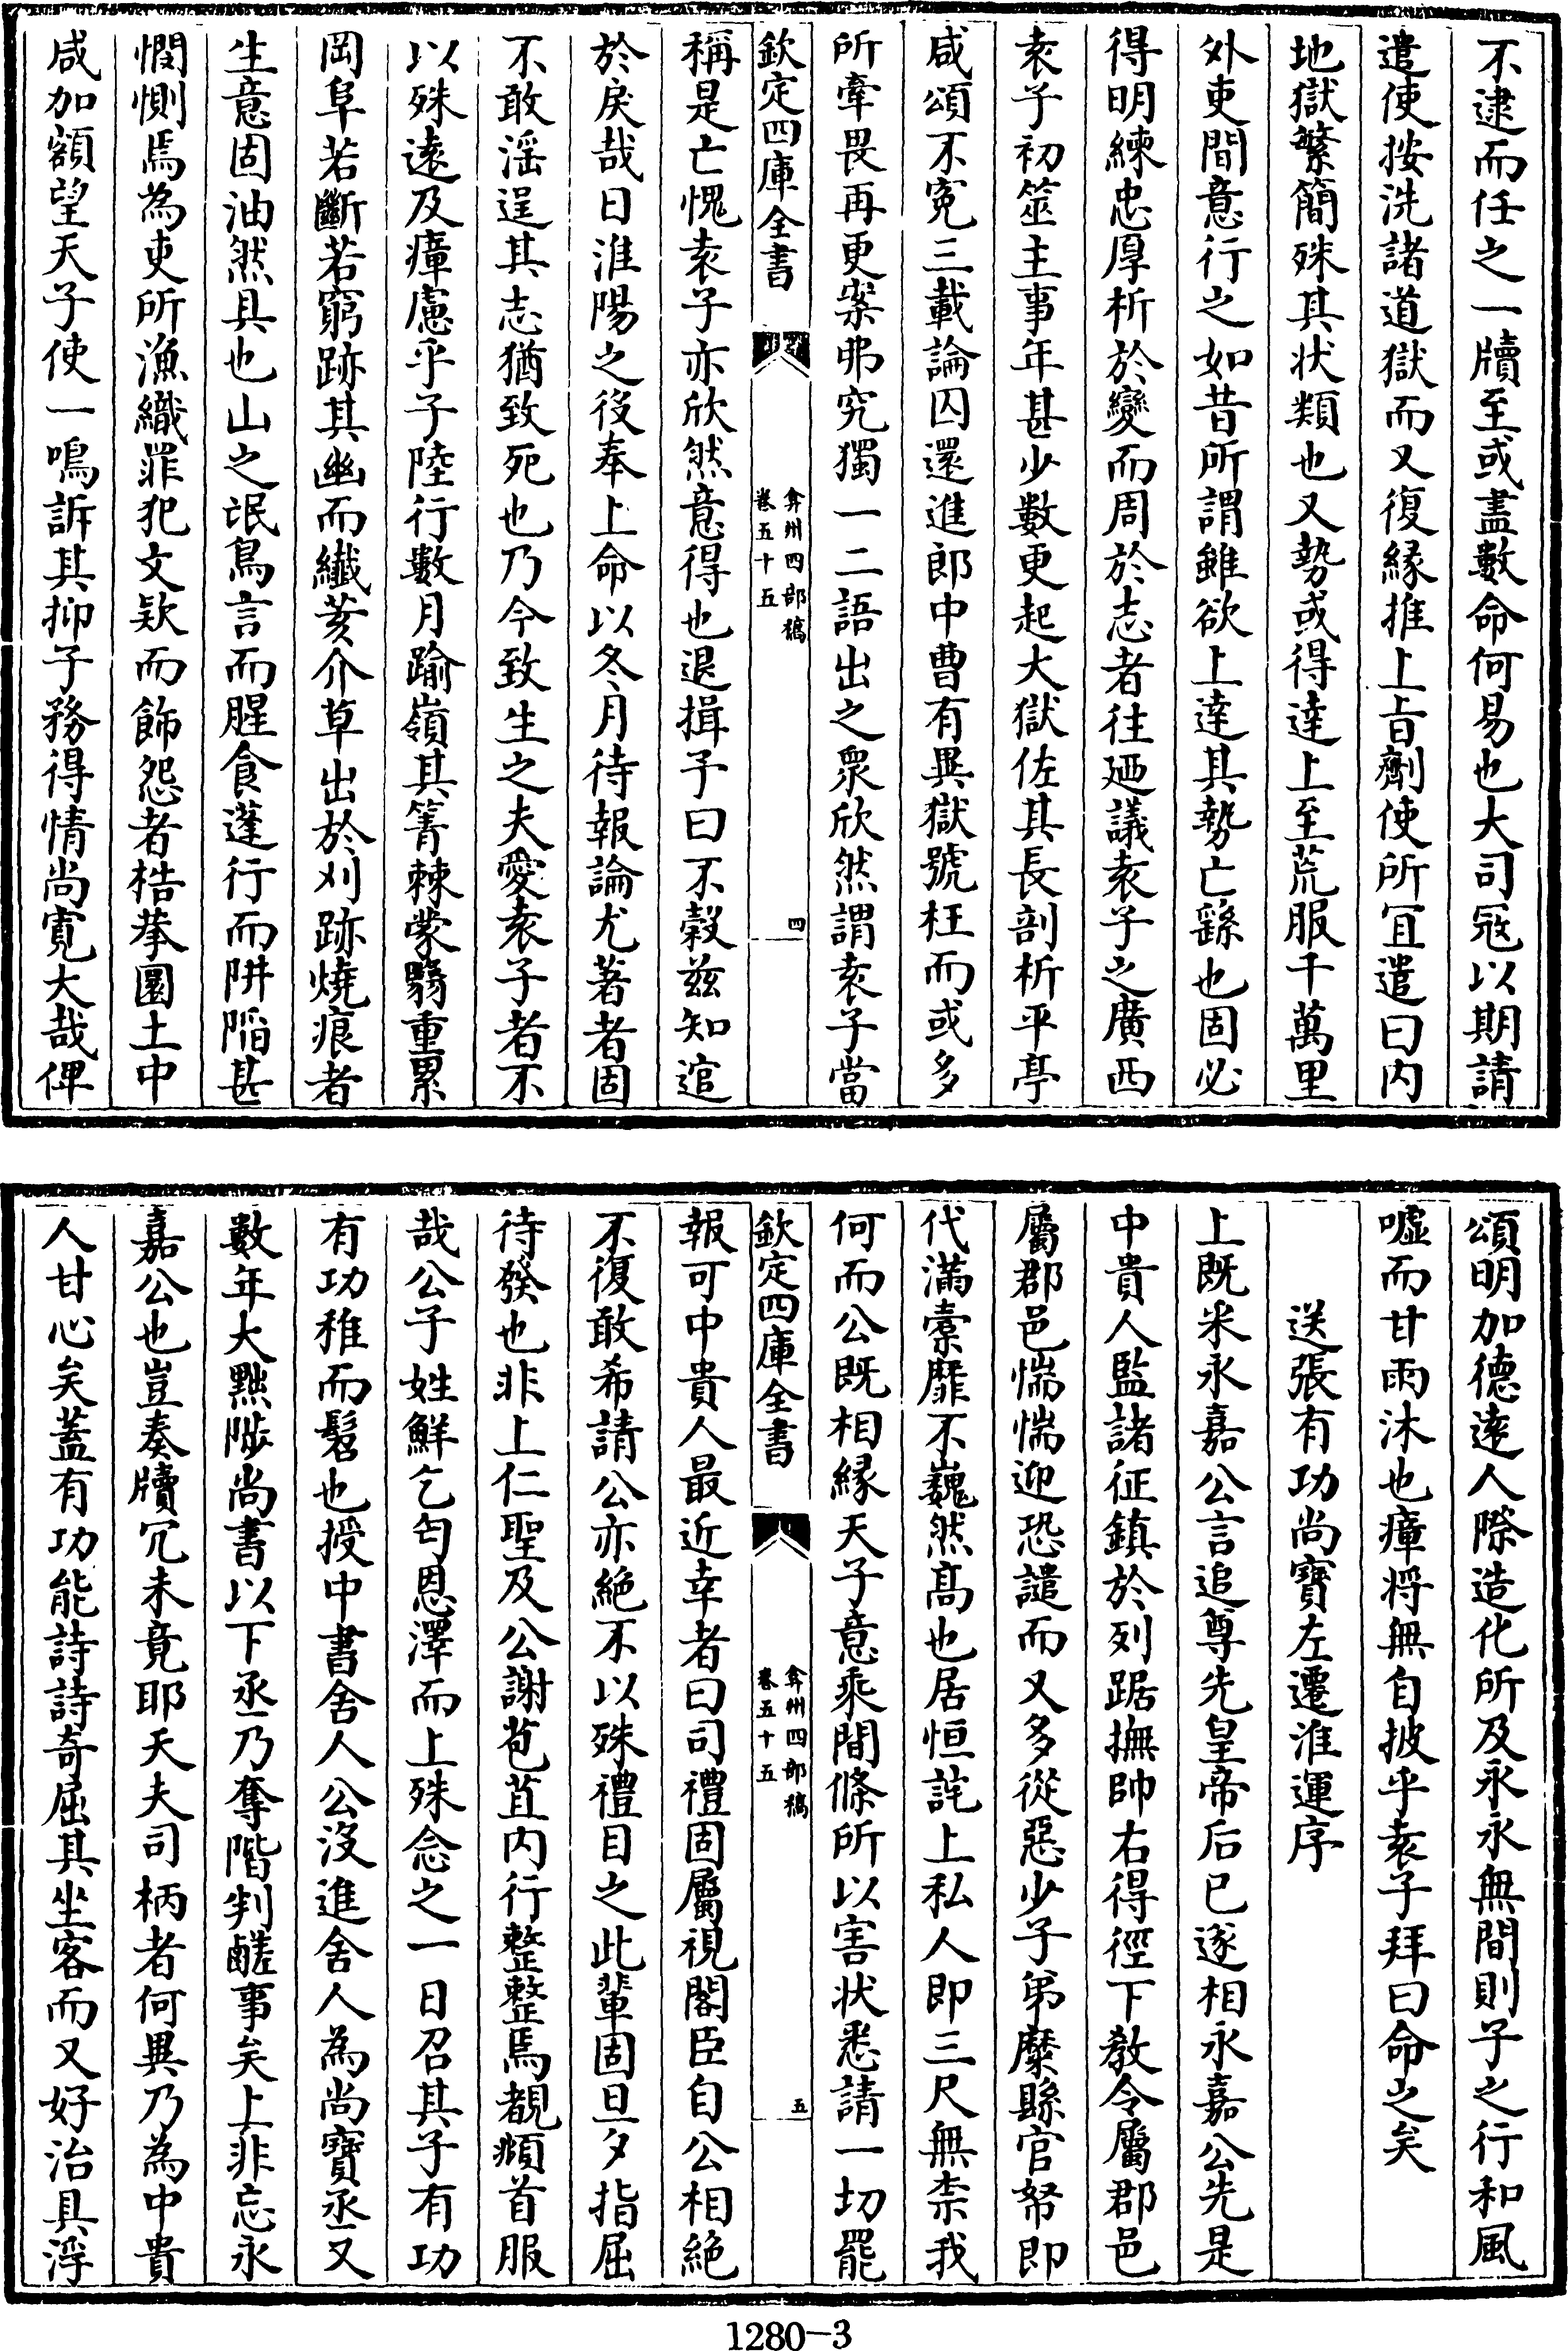 不逮而任之一牘至或盡數命何易也大司寇以期請
遣使按洗諸道獄而又復緣推上旨劑使所宜遣曰内
地獄繁簡殊其状類也又勢或得達上至荒服千萬里
外吏間意行之如昔所謂雖欲上達其勢亡繇也固必
得明練忠厚析於變而周於志者往廼議袁子之廣西
袁子初筮主事年甚少數更起大獄佐其長剖析平亭
咸頌不寃三載論囚還進郎中曹有異獄號枉而或多
所牽畏再更案弗究獨一二語出之衆欣然謂袁子當
欽定四庫全書
弇州四部稿
卷五十五
四
稱是亡愧袁子亦欣然意得也退揖子曰不穀兹知逭
於戾哉日淮陽之役奉上命以冬月待報論尤著者固
不敢滛逞其志猶致死也乃今致生之夫愛袁子者不
以殊逺及瘴慮乎子陸行數月踰嶺其箐棘蒙翳重累
岡阜若斷若窮跡其幽而纎荄介草出於刈跡燒痕者
生意固油然具也山之氓鳥言而腥食蓬行而阱陷甚
憫惻焉為吏所漁織罪犯文欵而飾怨者梏拲圜土中
咸加額望天子使一鳴訴其抑子務得情尚寛大哉俾
頌明加德逺人際造化所及永永無間則子之行和風
噓而甘雨沐也瘴将無自披乎袁子拜曰命之矣
送張有功尚寶左遷淮運序
上既采永嘉公言追尊先皇帝后已遂相永嘉公先是
中貴人監諸征鎮於列踞撫帥右得徑下敎令屬郡邑
屬郡邑惴惴迎恐譴而又多從惡少子弟糜縣官帑即
代滿橐靡不巍然髙也居恒詫上私人即三尺無柰我
何而公既相緣天子意乘間條所以害状悉請一切罷
欽定四庫全書
弇州四部稿
卷五十五
五
報可中貴人最近幸者曰司禮固屬視閣臣自公相絶
不復敢希請公亦絶不以殊禮目之此輩固旦夕指屈
待癸也非上仁聖及公謝苞苴内行整整焉覩頫首服
哉公子姓鮮乞匄恩澤而上殊念之一日召其子有功
有功稚而髫也授中書舍人公沒進舍人為尚寶丞又
數年大黜陟尚書以下丞乃奪階判鹺事矣上非忘永
嘉公也豈奏牘冗未竟耶天夫司柄者何異乃為中貴
人甘心矣蓋有功能詩詩奇屈其坐客而又好治具浮
1280-3